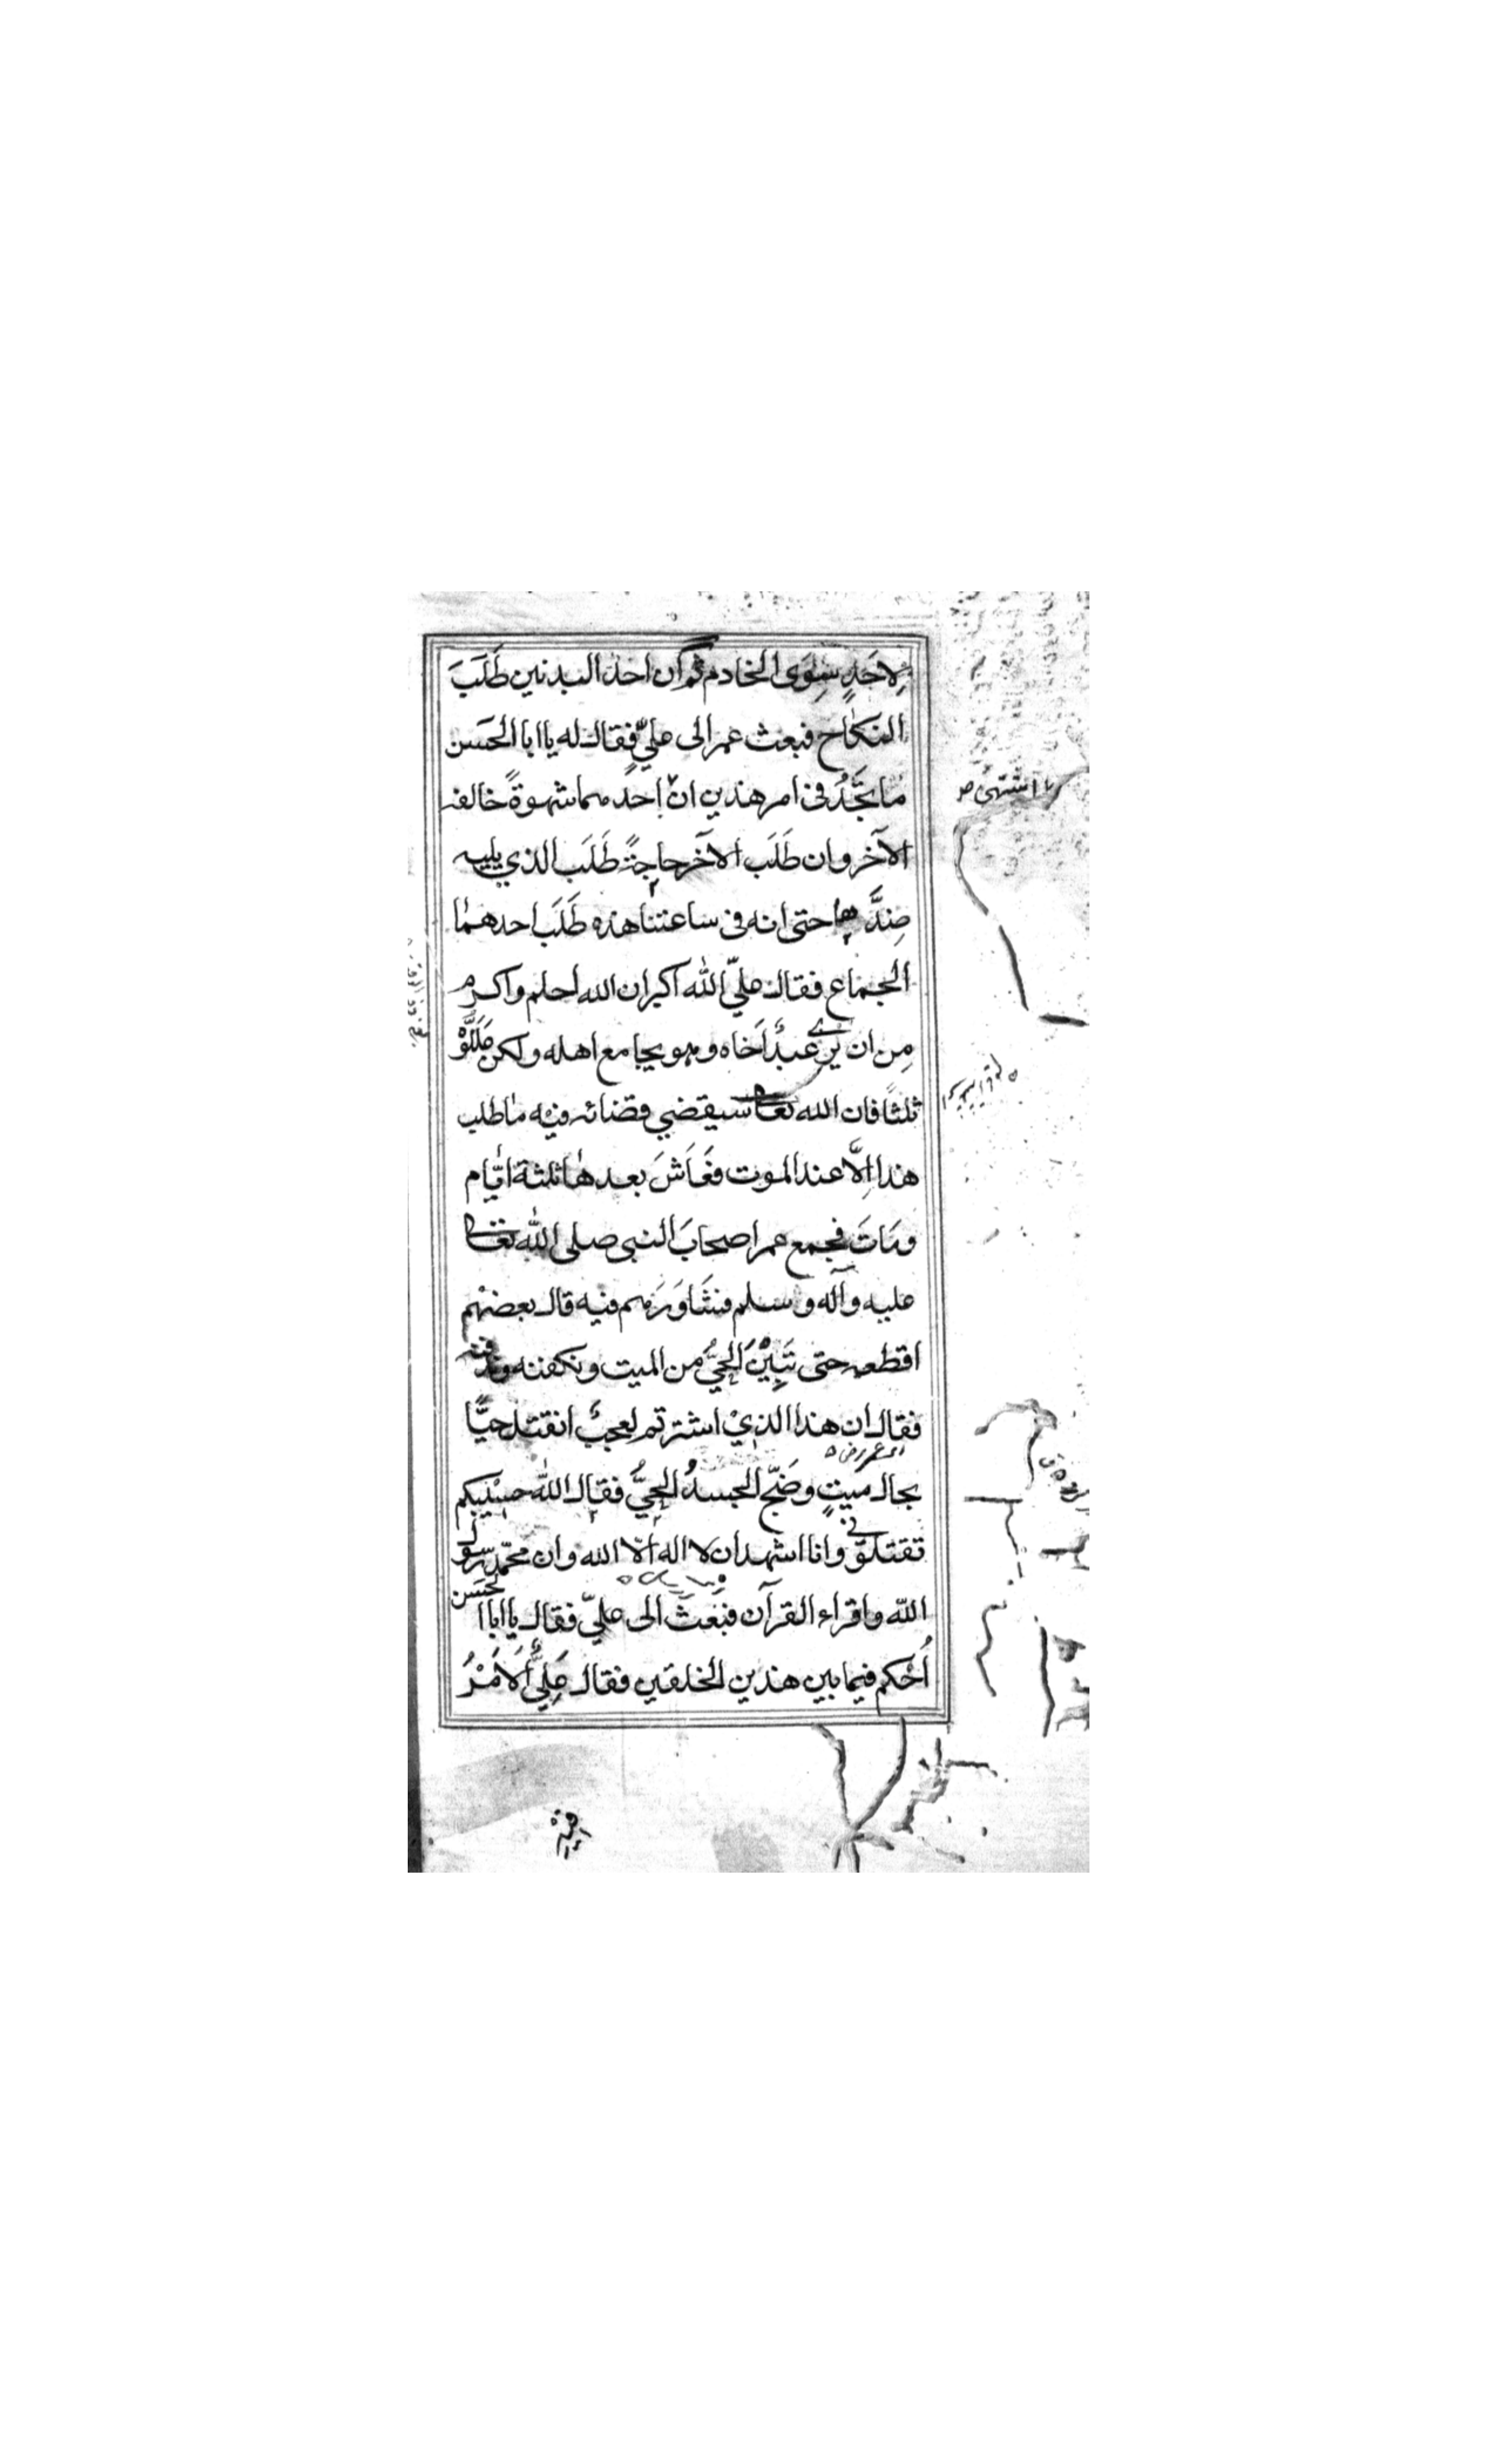 لاحَدٍ سِوَى الخادم ثم ان احد البدنين طَلَبَ
النكاح فبعث عمر الى عليٍّ فقال له يا ابا الحَسَن
ما تجدُ فى امر هذين ان احدهما شهوةً خالفه
الآخر وان طَلَب الآخر حاجةً طَلَب الذي يليه
ضِدَّها حتى انه فى ساعتنا هذه طَلَب احدهما
الجماع فقال عليّ الله اكبر ان الله احلم واكرم
مِن ان يرى عبدٌ اَخاه وهو يجامع اهله ولكن
ثلثًا فان الله تعالى سيقضي قضائه فيه ما طلب
هذا اِلّا عند الموت فعَاشَ بعدها ثلثة ايّام
ومَاتَ فجمع عمر اصحابَ النبى صلى الله تعالى
عليه وآله وسلم فشَاوَرَهم فيه قال بعضهم
اقطعه حتى تَبِيْنَ الحيُّ من الميت ونكفنه وندفنه
فقال ان هذا الذيْ اشرتم لعجبٌ انقتل حيًّا
اى عمر رض
بحال ميتٍ وضَجّ الجسدُ الحيُّ فقال الله حسْيبكم
تقتلونى وانا اشهد ان لا اله الّا الله وان محمّد رسول
الله واقراء القرآن فبَعَثَ الى عليّ فقال يا ابا الحَسَن
اُحْكم فيما بين هذين الخلقين فقال عَلِيٌّ اَلاَمْرُ
اشتهى